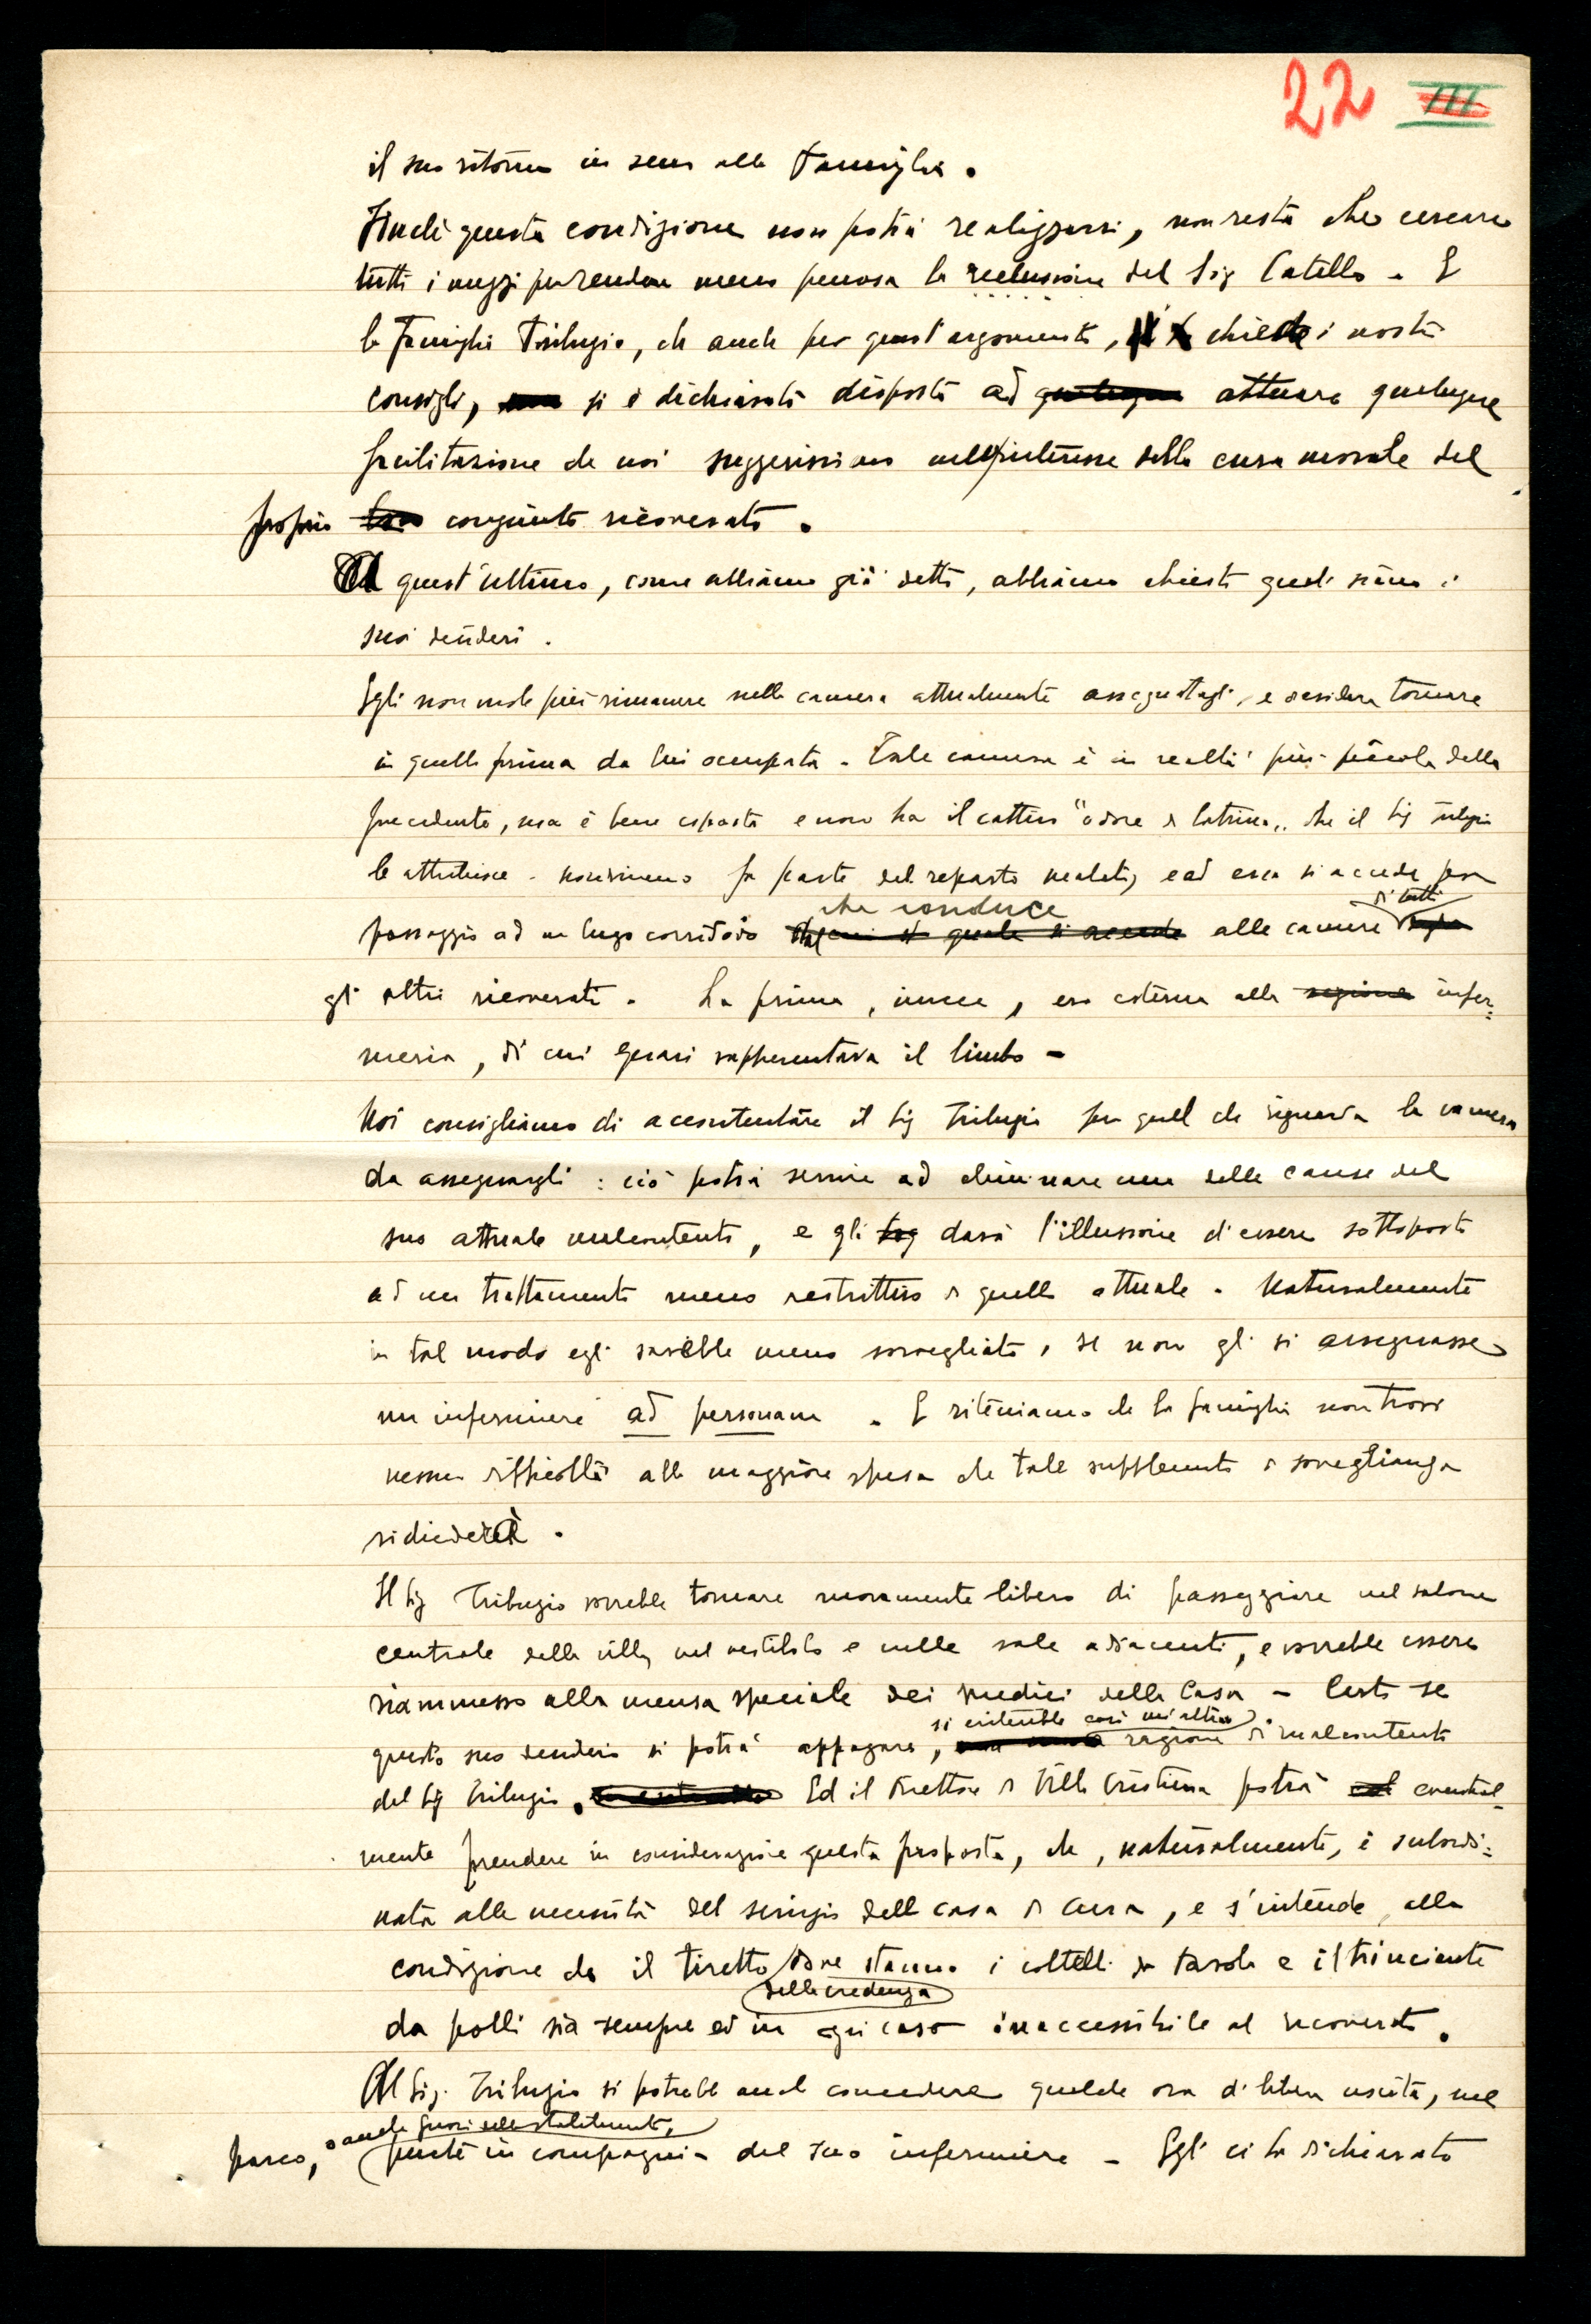 22 III
il suo ritorno in seno alla famiglia.
Finché questa condizione non potrà realizzarsi, non resta che cercare
tutti i mezzi per rendere meno penosa la reclusione del Sig Catello. E
la famiglia Trilugio, che anche per quest'argomento, chiede i nostri
consigli, si è dichiarata disposta ad attuare qualunque
facilitazione da noi suggerissimo nell'interesse della cura morale del
proprio congiunto ricoverato.
A quest'ultimo, come abbiamo già detto, abbiamo chiesto quali siano i
suoi desideri.
Egli non vuole più rimanere nella camera attualmente assegnatagli, e desidera tornare
in quella prima da lui occupata. Tale camera è in realtà più piccola della
precedente, ma è bene esposta e non ha il cattivo "odore di latrina" che il Sig Trilugio
le attribuisce. Nondimeno fa parte del reparto malati, e ad essa si accede per
passaggio ad un lungo corridoio che conduce alle camere di tutti
gli altri ricoverati. La prima, invece, era esterna alla infer=
meria, di cui quasi rappresentava il limbo –
Noi consigliamo di accontentare il Sig Trilugio per quel che riguarda la camera
da assegnargli: ciò potrà servire ad eliminare una delle cause del
suo attuale malcontento, e gli darà l'illusione d'essere sottoposto
ad un trattamento meno restrittivo di quello attuale. Naturalmente
in tal modo egli sarebbe meno sorvegliato, se non gli si assegnasse
un infermiere ad personam. E riteniamo che la famiglia non trovi
nessuna difficoltà alla maggiore spesa che tale supplemento di sorveglianza
richiederà.
Il Sig Trilugio vorrebbe tornare nuovamente libero di passeggiare nel salone
centrale della villa, nel vestibolo e nelle sale adiacenti, e vorrebbe essere
riammesso alla mensa speciale dei medici della Casa – Certo se
questo suo desiderio si potrà appagare, si eviterebbe così un'altra ragione di malcontento
del Sig Trilugio. Ed il Direttore di Villa Cristina potrà eventual=
mente prendere in considerazione questa proposta, che, naturalmente, è subordi=
nata alle necessità del servizio della casa di cura, e s'intende, alla
condizione che il tiretto della credenza dove stanno i coltelli da tavola e il trinciante
da polli sia sempre ed in ogni caso inaccessibile al ricoverato.
Al Sig. Trilugio si potrebbe anche concedere qualche ora di libera uscita, nel
parco, o anche fuori dello stabilimento, purché in compagnia del suo infermiere – Egli ci ha dichiarato